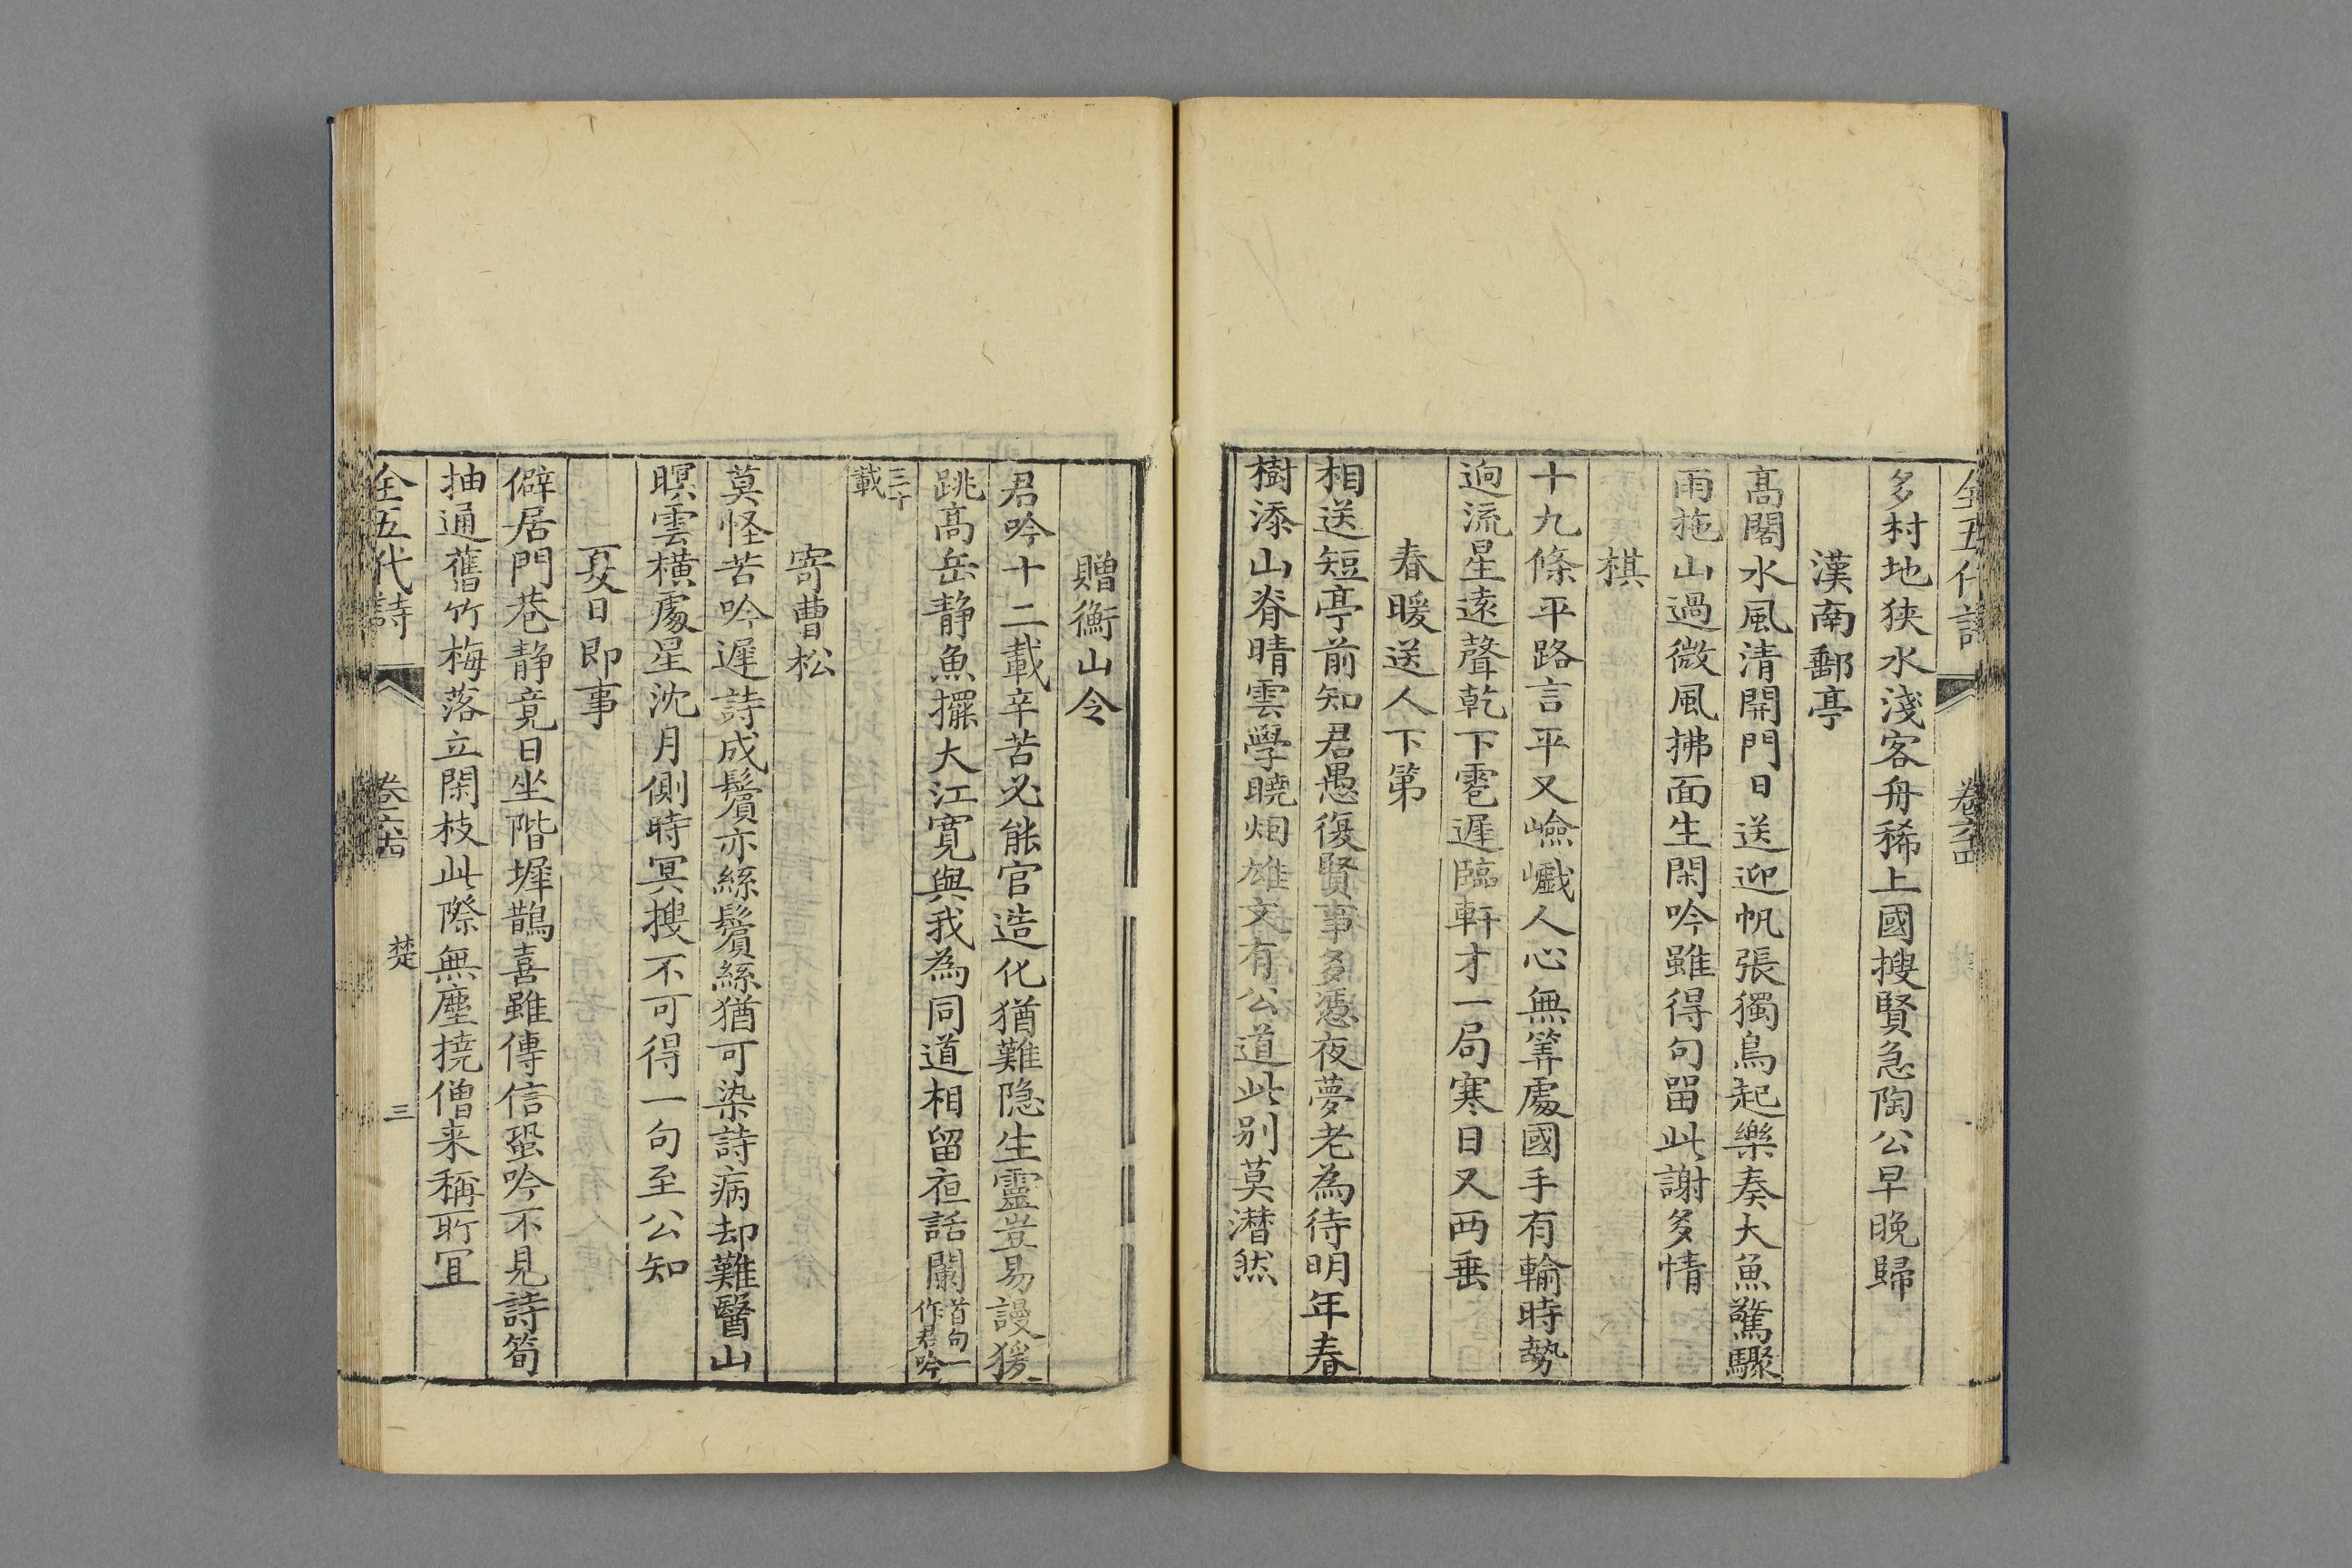 全五代詩
卷六十四
多村地狹水淺客舟稀上國搜賢急陶公早晚歸
漢南郵亭
高閣水風清開門日送迎帆張獨鳥起樂奏大魚驚驟
雨拖山過微風拂面生閑吟雖得句留此謝多情
棋
十九條平路言平又嶮巇人心無筭處國手有輸時勢
逈流星遠聲乾下雹遲臨軒才一局寒日又西垂
春暖送人下第
相送短亭前知君愚復賢事多憑夜夢老為待明年春
樹添山脊晴雲學曉烟雄文有公道此别莫潸然
贈衡山令
君吟十二載辛苦必能官造化猶難隐生靈豈易謾猨
跳高岳静魚擺大江寛與我為同道相留夜話闌首句一作君吟
三十載
寄曹松
莫怪苦吟遲詩成鬢亦絲鬢絲猶可染詩病却難醫山
暝雲橫處星沈月側時冥搜不可得一句至公知
夏日即事
僻居門巷静竟日坐階墀鵲喜雖傳信蛩吟不見詩筍
抽通舊竹梅落立閑枝此際無塵撓僧来稱所宜
全五代詩
卷六十四
楚
三